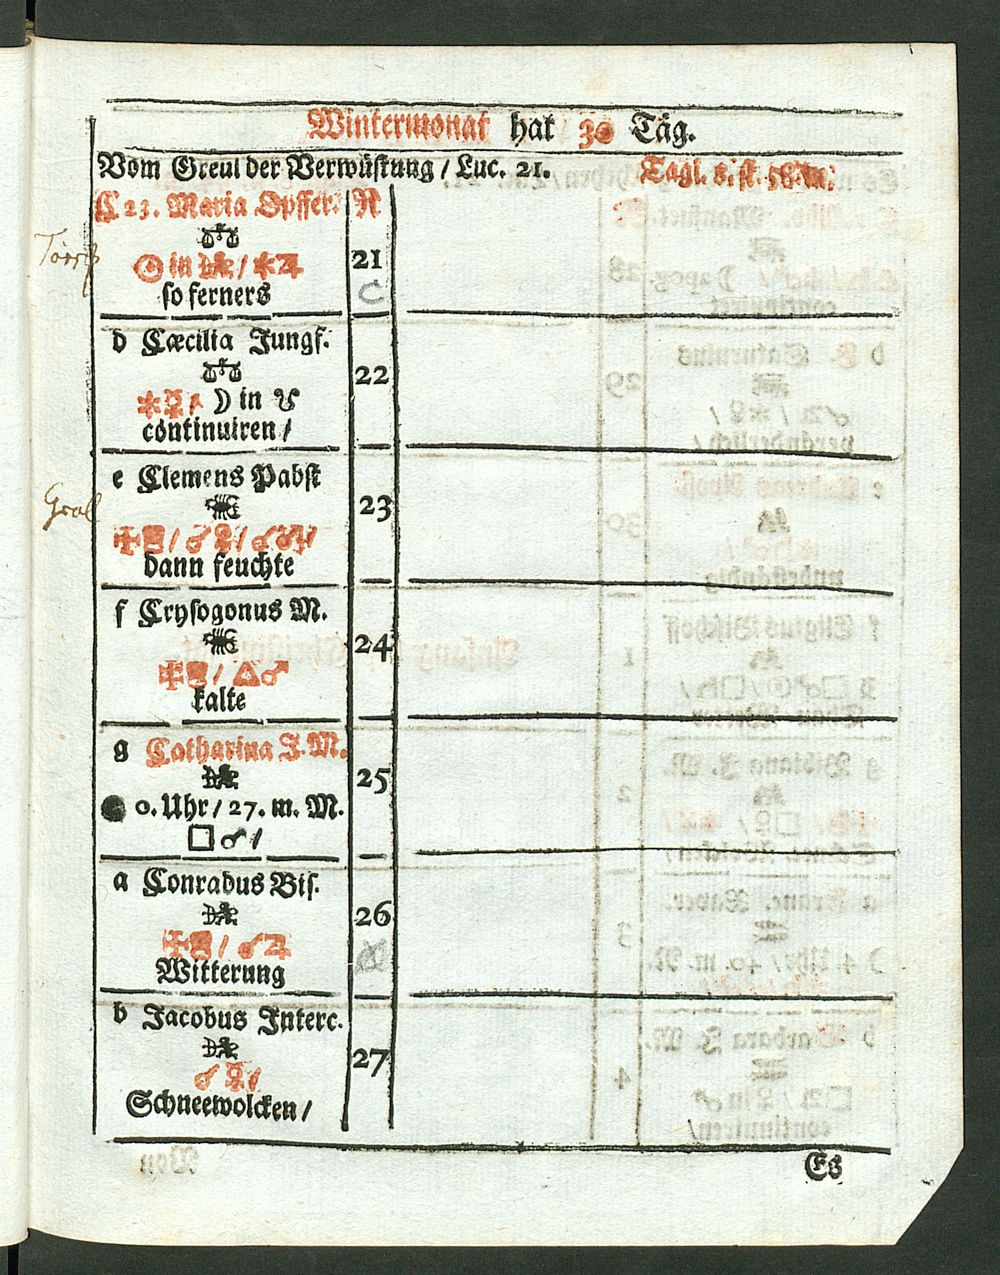 Wintermonat hat 30 Täg.
Vom Greul der Verwüstung / Luc. 21. Tagl. 8. st. 58. m.
C 23. Maria Opffer. N
♎
☉ in ♐ / ✶♃ 21
so ferners
d Cæcilia Jungf.
♎
✶☿ / ☽ in ☋ 22
continuiren /
e Clemens Pabst
♏ 23
/ ☌♀ / ☌♂ /
dann feuchte
f Crysogonus M.
♏ 24
/ △♂
kalte
g Catharina J. M.
♐ 25
● 0. Uhr / 27. m. M.
□ ♂ /
a Conradus Bis.
♐ 26
/ ☌♃
Witterung
b Jacobus Interc.
♐ 27
☌☿ /
Schneewolcken /
Es